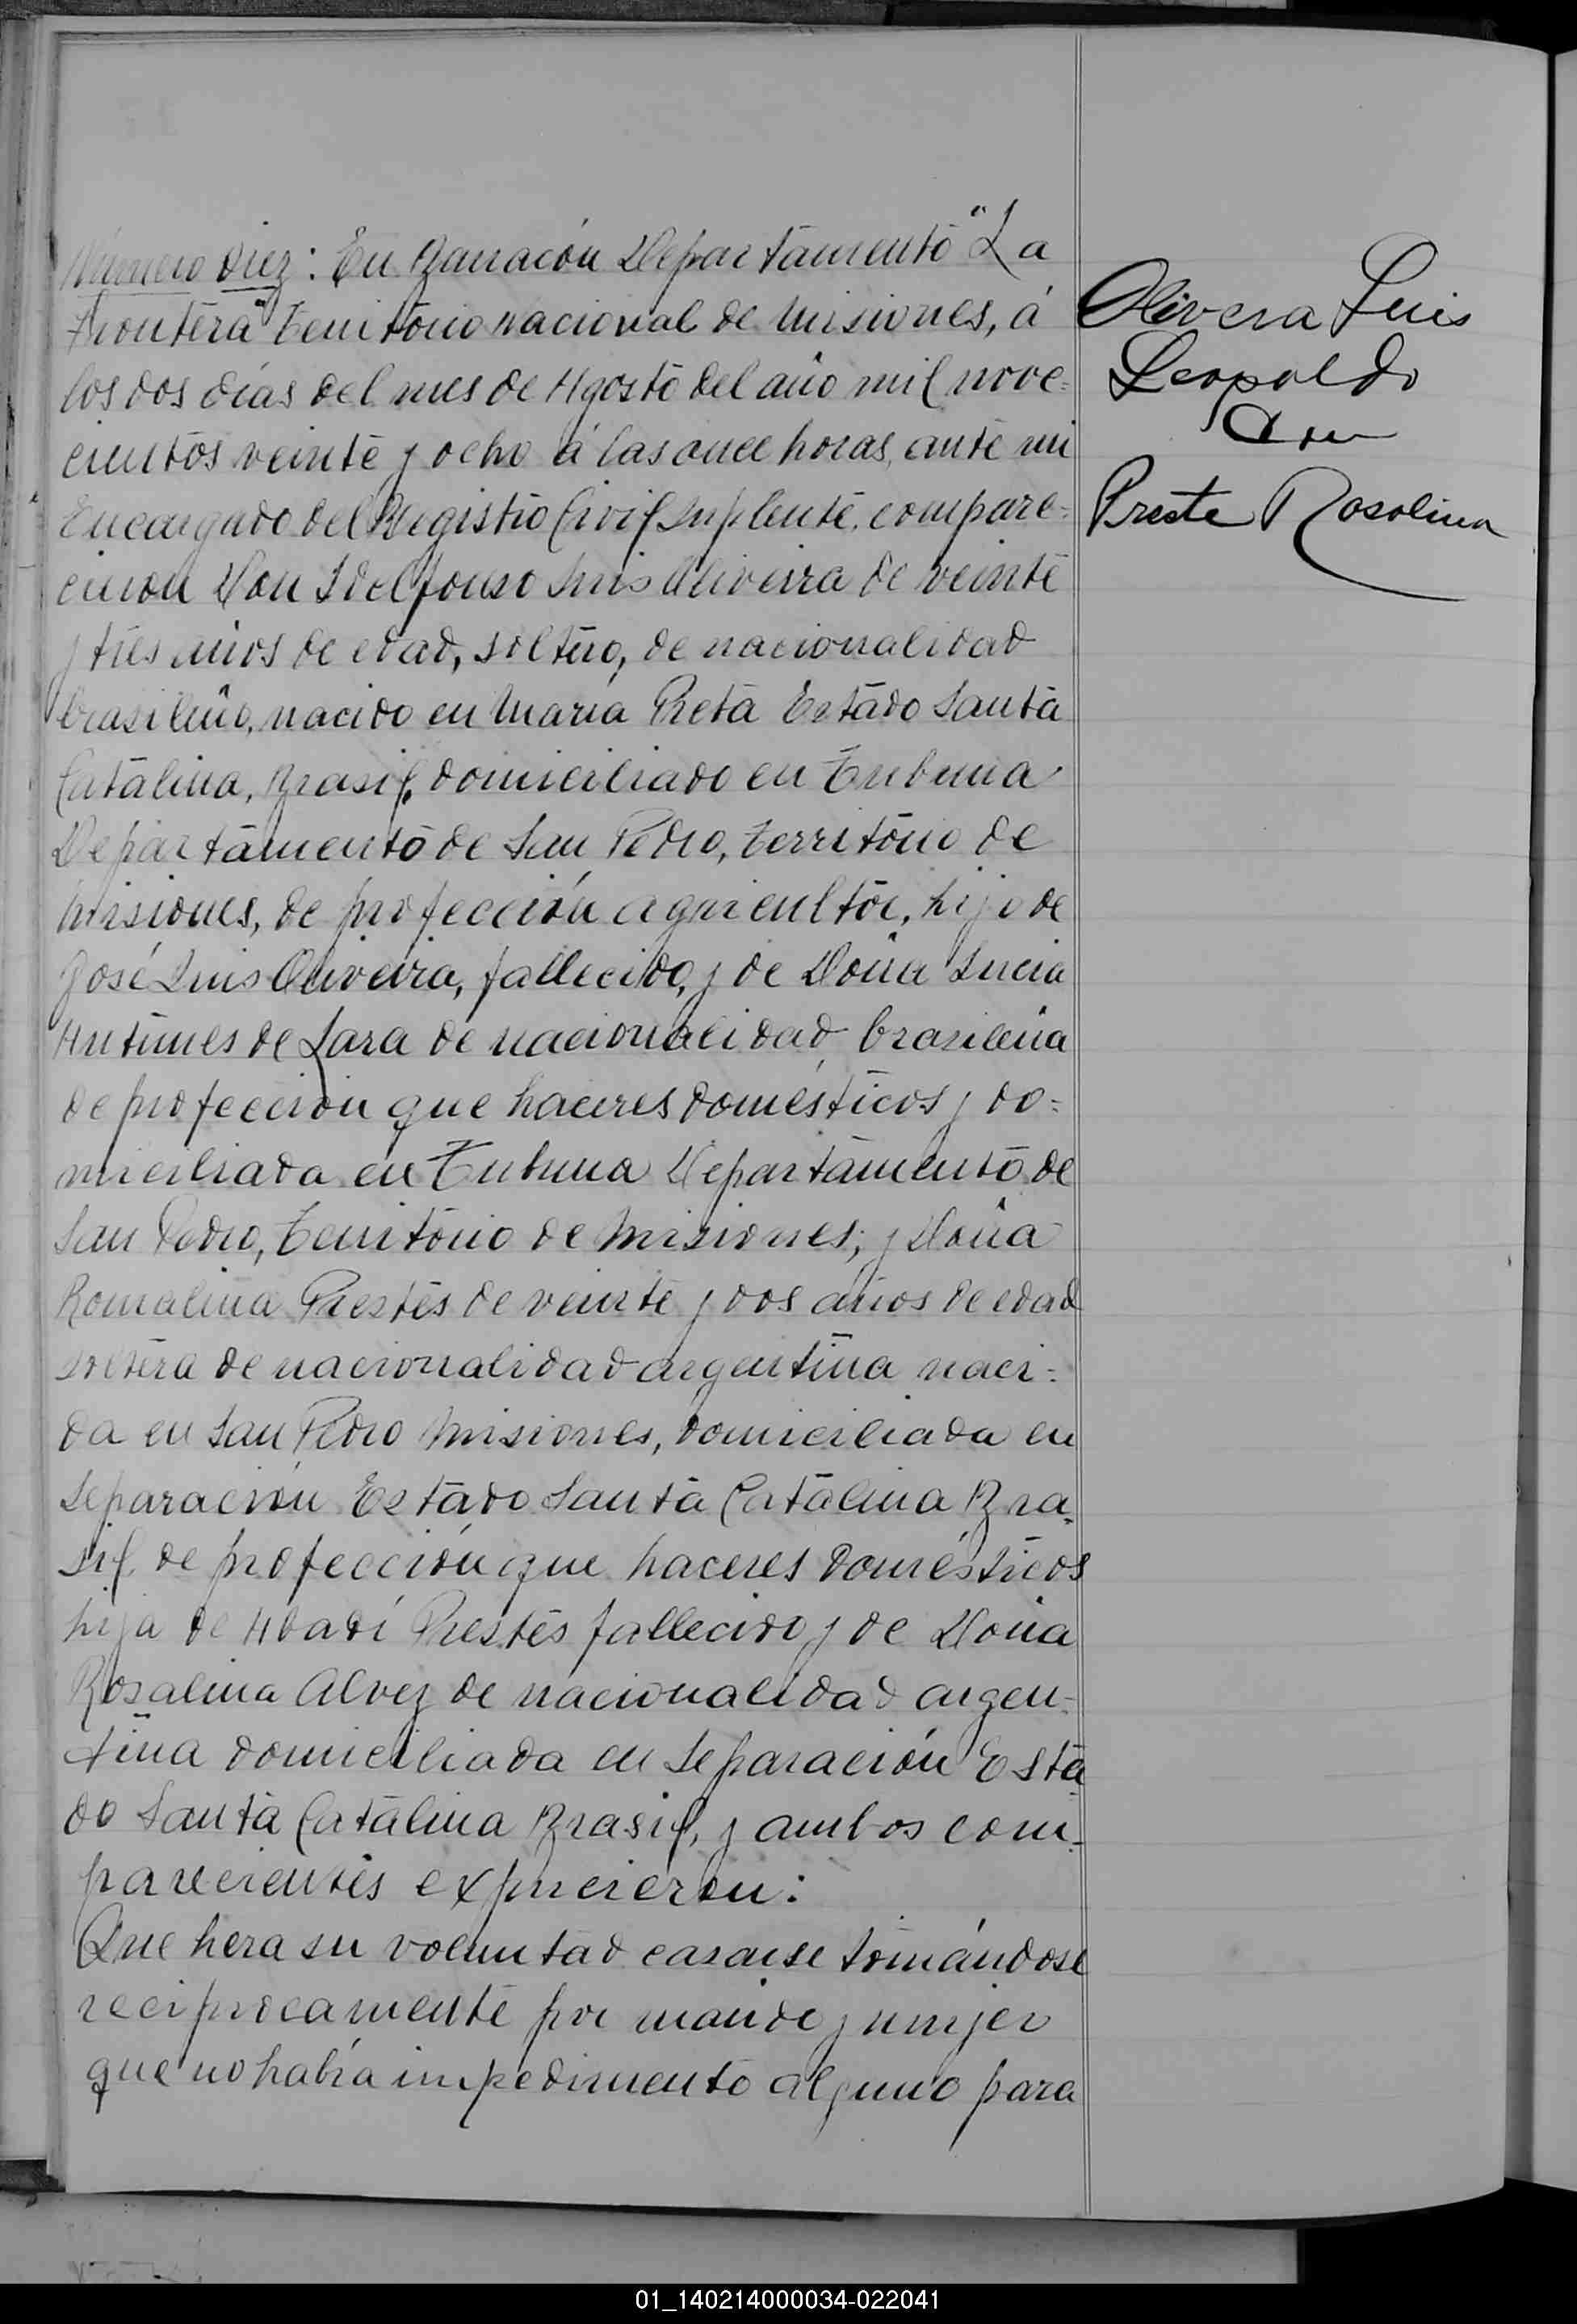 Número diez: En Barracón Departamento "La
Frontera" Territorio Nacional de Misiones, á
los dos días del mes de Agosto del año mil nove=
cientos veinte y ocho á las once horas, ante mi
Encargado del Registro Civil Suplente, compare=
cieron Don Idelfonso Luis Oliveira de veinte
y tres años de edad, soltero, de nacionalidad
brasileño, nacido en María Preta Estado Santa
Catalina, Brasil, domiciliado en
Departamento de San Pedro, Territorio de
Misiones, de profección agricultor, hijo de
José Luis Oliveira, fallecido, y de Doña Lucia
Antunes de Lara de nacionalidad brasileña
de profección que haceres domésticos y do=
miciliada en Departamento de
San Pedro, Territorio de Misiones; y Doña
Romalina Prestes de veinte y dos años de edad
soltera de nacionalidad argentina naci=
da en San Pedro Misiones, domiciliada en
Separación Estado Santa Catalina Bra=
sil, de profección que haceres domésticos
hija de Prestes fallecido y de Doña
Rosalina Alvez de nacionalidad argen=
tina domiciliada en Separación Esta
do Santa Catalina Brasil, y ambos com=
parecientes expucieron:
Que hera su voluntad casarse tomándose
reciprocamente por marido y mujer
que no había impedimento alguno para
Olivera Luis
Leopoldo
con
Preste Rosolina
01_140214000034-022041